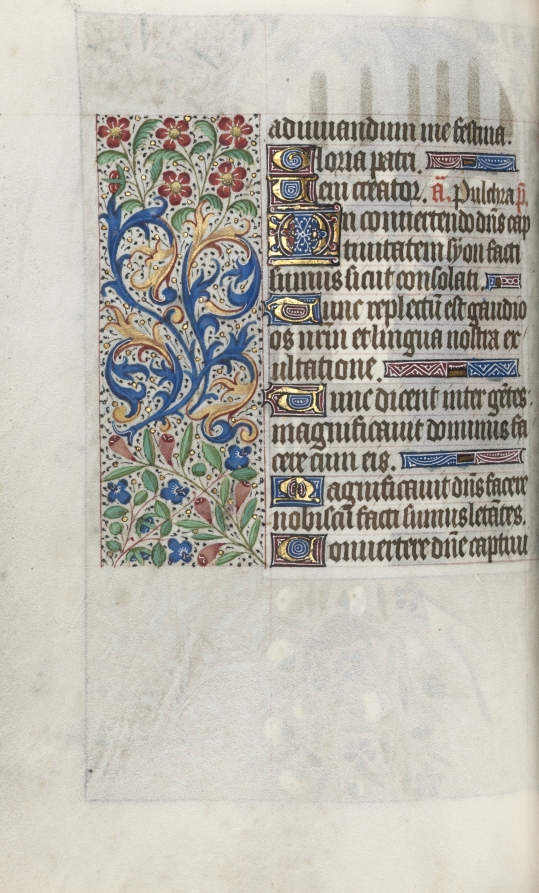 adiuuandum me festina.
Gloria patri.
Veni creator. ã. Pulchra p̄.
In conuertendo dn̄s cap
tiuitatem syon facti
sumus sicut consolati.
Tunc repletū est gaudio
os nr̄m et lingua nostra ex
ultatione.
Tunc dicent inter gētes.
magnificauit dominus fa
cere cum eis.
Magnificauit dn̄s facere
nobiscū facti sumus letātes.
Conuertere dn̄e captiui